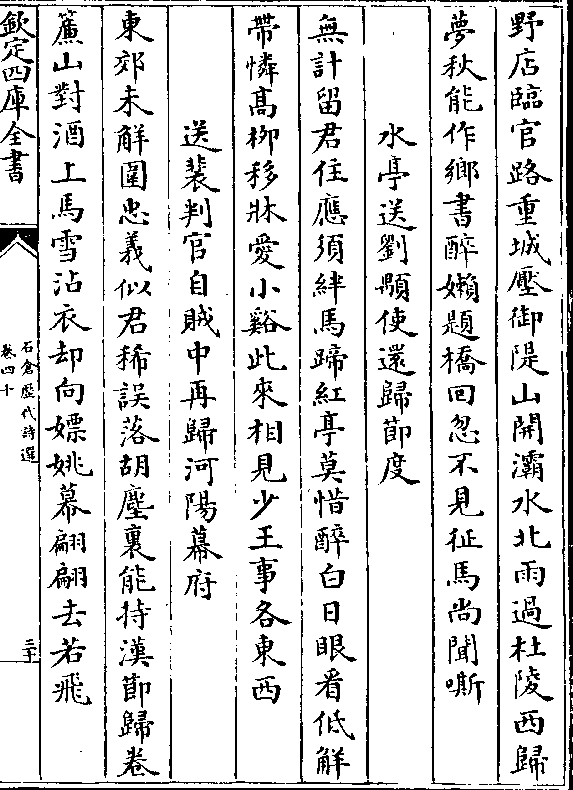 野店臨官路重城壓御隄山開灞水北雨過杜陵西歸
夢秋能作鄉書醉嬾題橋回忽不見征馬尚聞嘶
水亭送劉顒使還歸節度
無計留君住應須絆馬蹄紅亭莫惜醉白日眼看低解
帶憐髙栁移牀愛小谿此來相見少王事各東西
送裴判官自賊中再歸河陽幕府
東郊未解圍忠義似君稀誤落胡塵裏能持漢節歸卷
簾山對酒上馬雪沾衣却向嫖姚幕翩翩去若飛
欽定四庫全書
石倉歷代詩選
卷四十
二十